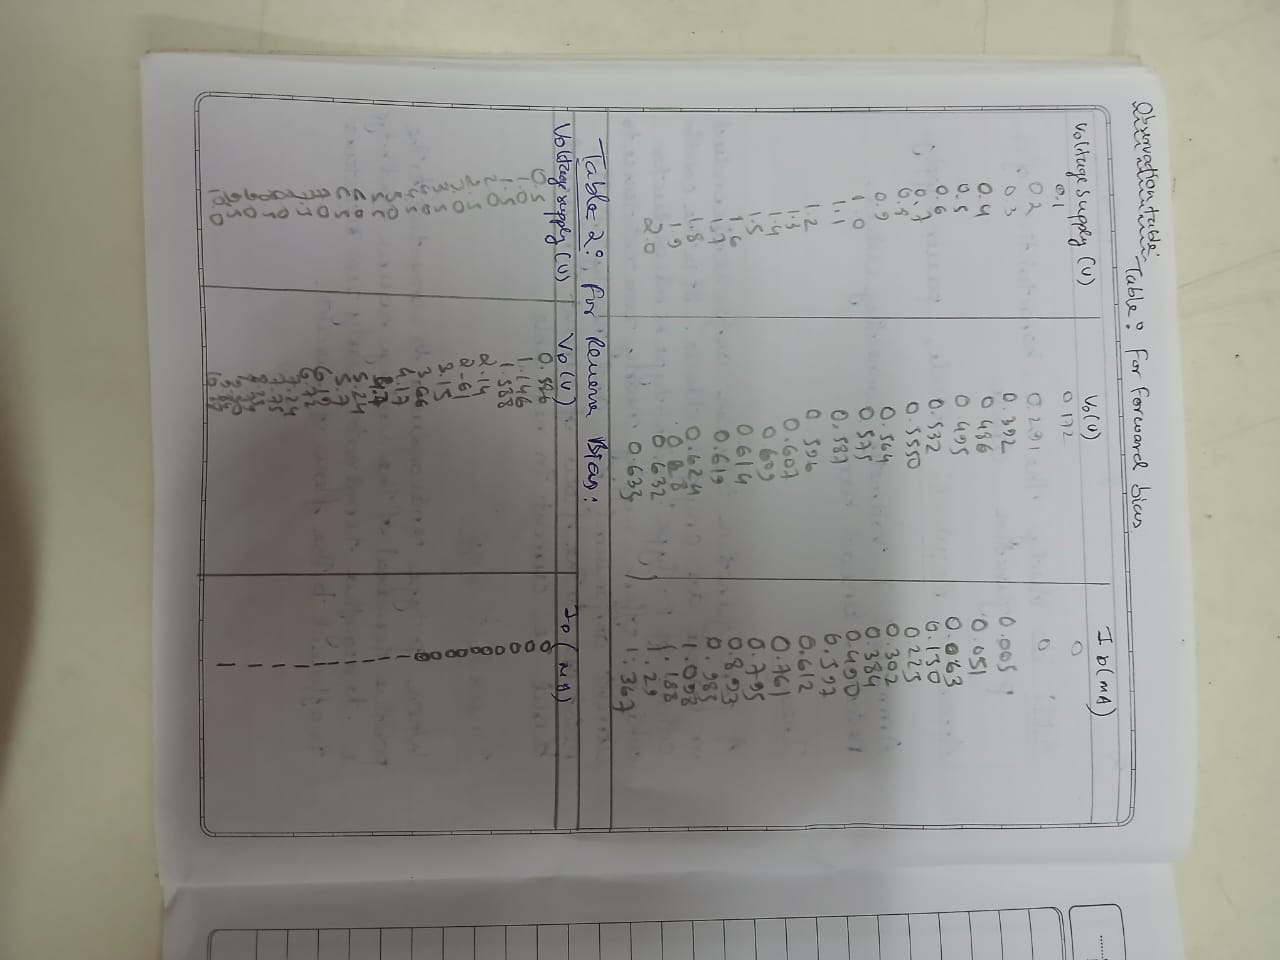 Observation table:
Table: For Forward bias
Voltage supply (V) VD(V) ID(mA)
0.1 0.172 0
0.2 0.291 0
0.3 0.392 0.005
0.4 0.486 0.051
0.5 0.495 0.063
0.6 0.532 0.150
0.7 0.5550 0.225
0.8 0.564 0.302
0.9 0.575 0.384
1.0 0.587 0.490
1.1 0.596 0.597
1.2 0.607 0.612
1.3 0.609 0.761
1.4 0.614 0.795
1.5 0.619 0.893
1.6 0.624 0.985
1.7 1.098
1.8 0.632 1.188
1.9 0.633 1.29
2.0 1.367
Table 2: For Reverse Bias:
Voltage supply (V) VD(V) ID(mA)
0.5 0.586 0
1.0 1.146 0
1.5 1.588 0
2.0 2.14 0
2.5 2.61 0
3.0 3.15 0
3.66 0
4.17 0
4.7 0
5.24
5.7
6.19
6.72
7.24
7.75
10.0